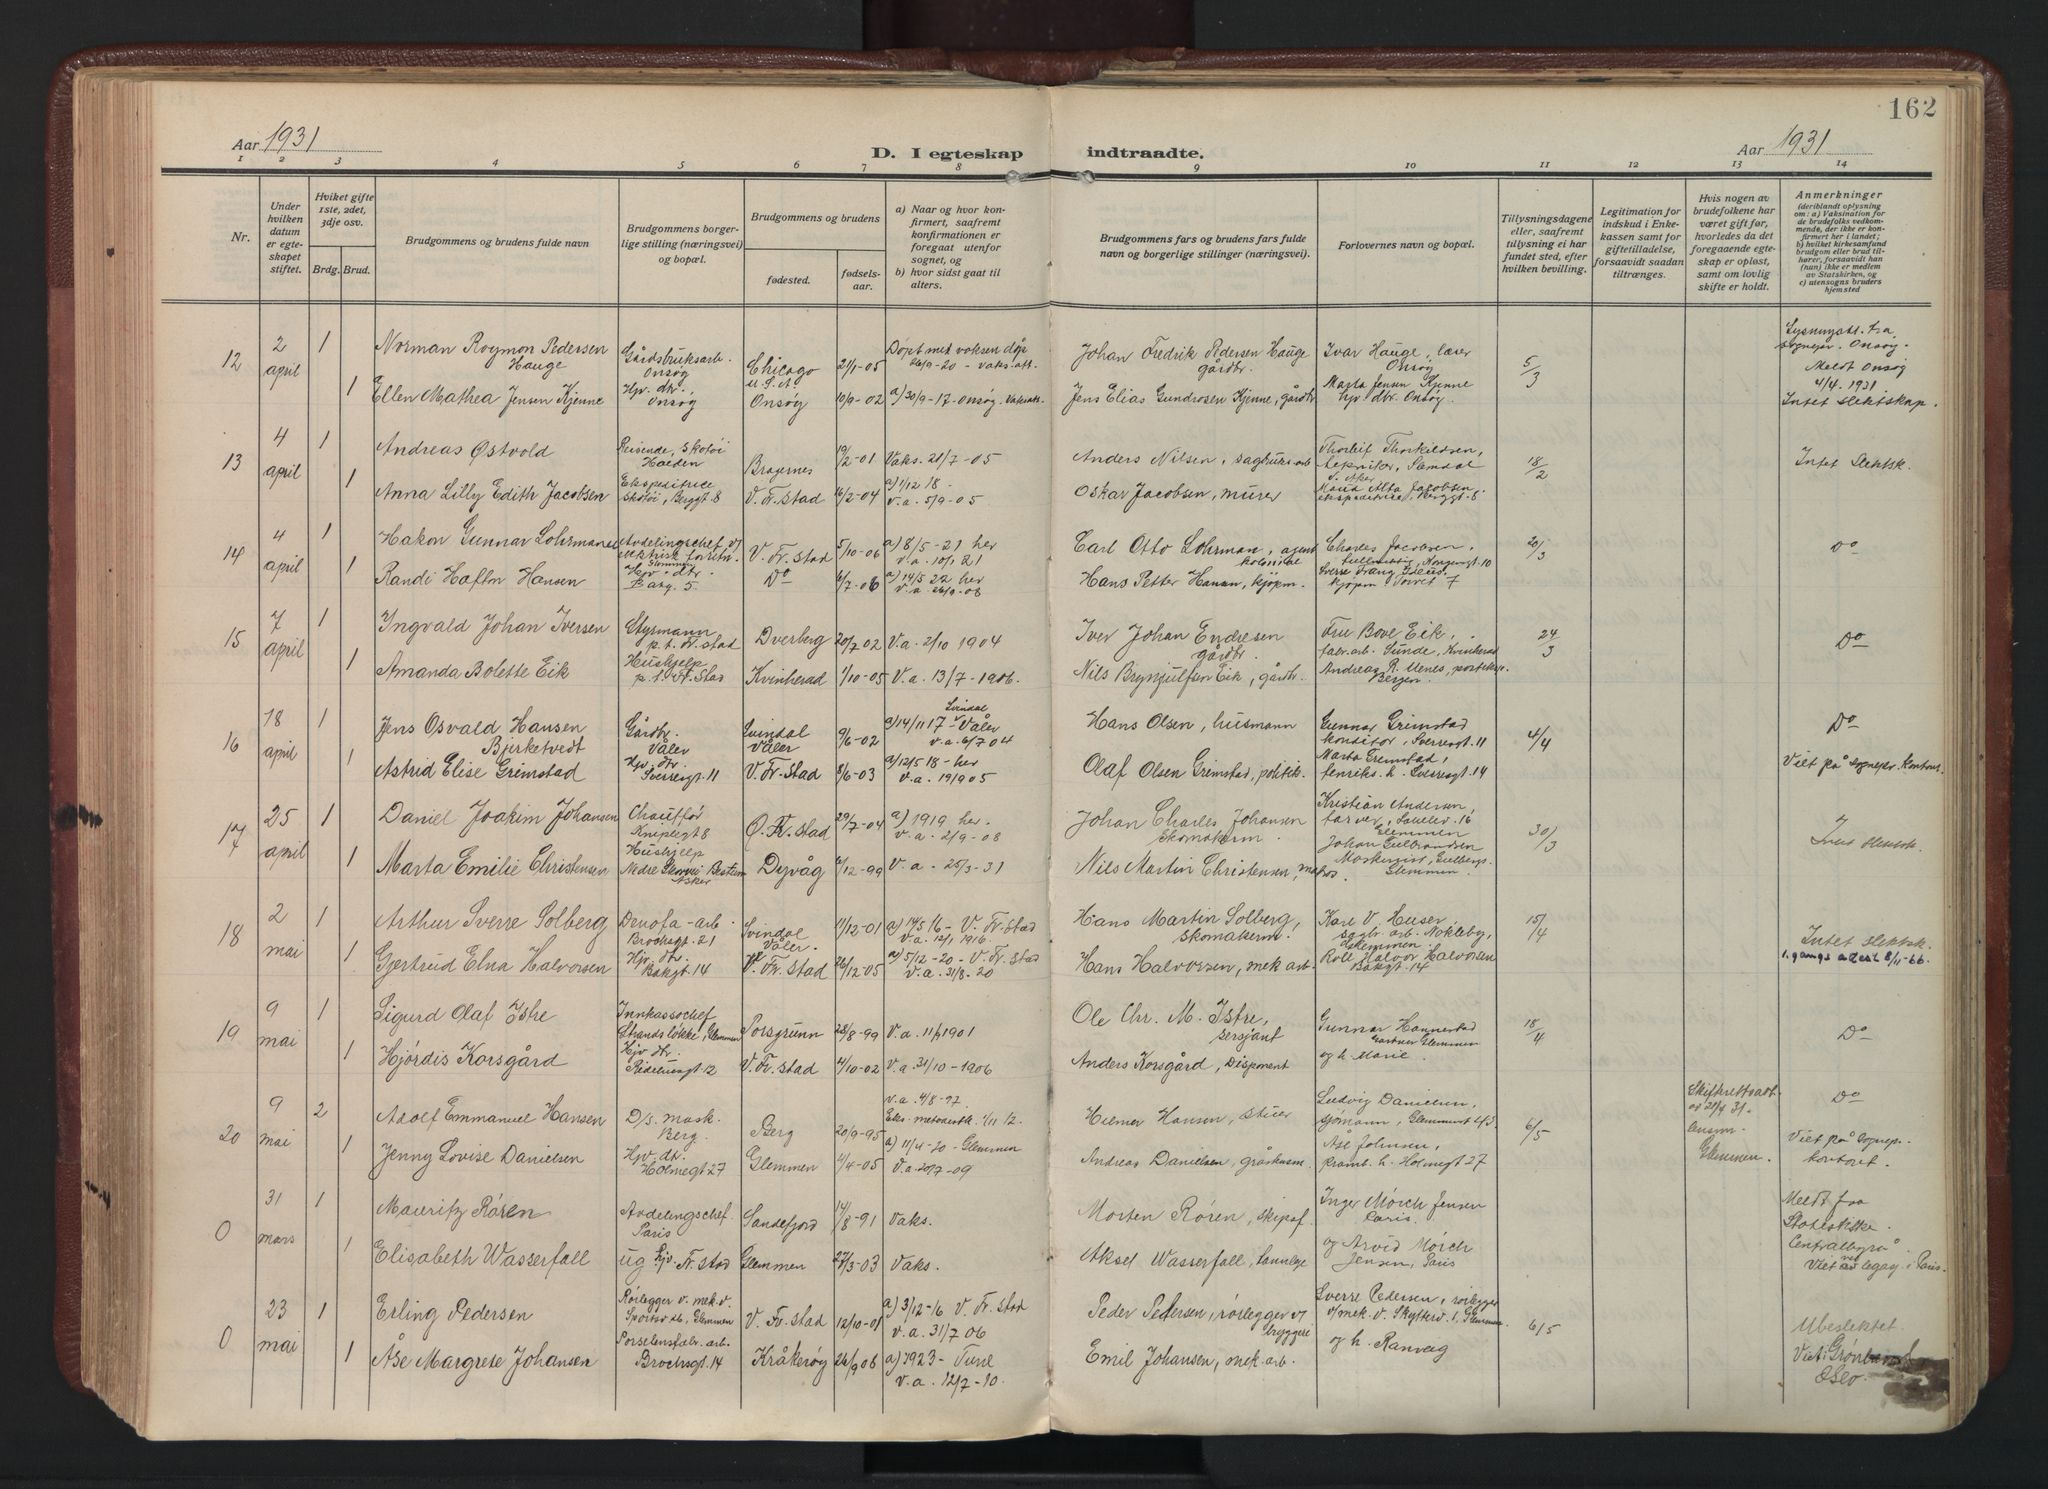 162
Aar 1931
D. I egteskap indtraadte.
Aar 1931
1 2 3 4 5 6 7 8 9 10 11 12 13 14
Nr.
Under hvilken datum er egteskapet stiftet.
Hviket gifte 1ste, 2det, 3dje osv.
Brdg. Brud.
Brudgommens og brudens fulde navn
Brudgommens borgerlige stilling (næringsvei) og bopæl.
Brudgommens og brudens
fødested.
fødselsaar.
a) Naar og hvor konfirmert, saafremt konfirmationen er foregaat utenfor sognet, og
b) hvor sidst gaat til alters.
Brudgommens fars og brudens fars fulde navn og borgerlige stillinger (næringsvei).
Forlovernes navn og bopæl.
Tillysningsdagene eller, saafremt tillysning ei har fundet sted, efter hvilken bevilling.
Legitimation for indskud i Enkekassen samt for giftetilladelse, forsaavidt saadan tiltrænges.
Hvis nogen av brudefolkene har været gift før, hvorledes da det foregaaende egteskap er opløst, samt om lovlig skifte er holdt.
Anmerkninger
(deriblandt oplysning om: a) Vaksination for de brudefolks vedkommende, der ikke er konfirmert her i landet;
b) hvilket kirkesamfund brudgom eller brud tilhører, forsaavidt han (hun) ikke er medlem av Statskirken, og
c) utensogns bruders hjemsted
12 2 april 1 Norman Roymon Pedersen Hauge Gårdsbruksarb. Onsøy Chicago U.S.A. 21/1-05 Døpt med voksen dåp 26/9-20 - vaks. att. Johan Fredrik Pedersen Hauge gårdbr. Ivar Hauge, lærer Onsøy 5/3 Lysningsatt. fra sognepr. Onsøy.
1 Ellen Mathea Jensen Kjenne Hjv. dtr. Onsøy Onsøy 10/9-02 a) 30/9-17-Onsøy. Vaksatt. Jens Elias Gundrosen Kjenne, gårdbr Marta Jensen Kjenne hjv dtr. Onsøy. Meldt Onsøy 4/4. 1931. Intet slektskap.
13 4 april 1 Andreas Østvold Reisende, skotøi Halden Bragernes 19/2-01 Vaks. 21/7-05 Anders Nilsen, sagbruksarb Thorleif Thorkildsen, tekniker, V. Aker 18/2 Intet slektsk.
1 Anna Lilly Edith Jacobsen Ekspeditrice skotøi, Bryggt 8 V. Fr.stad 16/2-04 a) 1/12 18. v.a. 5/9-05 Oskar Jacobsen, murer Jacobsen, ekspeditrice, Bryggt. 8
14 4 april 1 Hakon Gunnar Lohrman Avdelingschef v/ elektrisk forretn. Glemmen V. Fr. stad 5/10-06 a) 8/5-21 her v.a. 10/1 21 Carl Otto Lohrman, agent kolonial Charles Jacobsen, fullmektig, Kongensgt. 10 20/3 Do
1 Randi Haftn Hansen Hjv. dtr. Bakg. 5. Do 6/7-06 a) 14/5 22 her v.a. 26/9-08 Hans Petter Hansen, kjøpm. Sverre kjøpm Torvet 7
15 7 april 1 Yngvald Johan Iversen Styrmann p.t. Fr. stad Dverberg 20/7 02 V.a. 2/10 1904 Iver Johan Endresen gårdbr. Fru Bove Eik, fabr.arb. Sunde, Kvinherad 24/3 Do
1 Amanda Bolette Eik Hushjelp p.t. Fr. Stad Kvinherad 1/10-05 V.a. 13/7-1906. Nils Brynjulfsen Eik, gårdbr. Andreas R. Bergen.
16 18 april 1 Jens Osvald Hansen Bjerketvedt Gårdbr. Våler Svindal Våler 9/6-02 a) 14/11 17 - Svindal Våler v.a. 6/7 04 Hans Olsen, husmann Gunnar Grimstad konditor, Sverresgt. 11 4/4 Do
1 Astrid Elise Grimstad Hjv. dtr. Sverresgt. 11 V. Fr. Stad 8/6-03 a) 12/5 18 - her v.a. 19/9 05 Olaf Olsen Grimstad, politik. Marta Grimstad, Sverresgt. 14 Viet på sognepr. kontor.
17 25 april 1 Daniel Joakim Johansen Chauffør Kniplegt 8 Ø. Fr. stad 29/7-04 a) 1919 her. v.a. 2/9-08 Johan Charles Johansen skomakerm. Kristian Andersen, farver, 16 Glemmen 30/3 Intet slektsk.
1 Marta Emilie Christensen Hushjelp Nedre Bestum Asker Dyvåg 2/12-99 V.a - 25/3-31 Nils Martin Christensen, matros. Johan Gulbrandsen Maskinist, Gulbergs. Glemmen.
18 2 mai 1 Arthur Sverre Solberg Denofa-arb. Brochsgt. 21 Svindal Våler. 11/12-01 a) 14/5 16 - V. Fr. stad v.a. 12/1 1916. Hans Martin Solberg, skomakerm. Karl V. Huser, sagbr. arb. Nokleby, Glemmen. 15/4 Intet slektsk.
1 Gjertrud Elna Halvorsen Hjv. dtr. Bakgt. 14 V. Fr. stad 26/12-05 a) 5/12-20 - V. Fr. stad v.a. 31/8-20 Hans Halvorsen, mek arb. Rolf Halvor Halvorsen Bakgt. 14 1. gangs attest 8/11-66.
19 9 mai 1 Sigurd Olaf Istre Innkassochef Strandsløkke, Glemmen Porsgrunn 28/8-99 V.a. 11/9 1901 Ole Chr. M. Istre, sersjant Gunnar Hannestad Gartner Glemmen 18/4 Do
1 Hjørdis Korsgård Hjv. dtr. Ridehusgt. 12 V. Fr. stad 4/10-02 v.a. 31/10-1906 Anders Korsgård, Disponent og h. Marie.
20 9 mai 2 Adolf Emmanuel Hansen D/s. mask. Berg. Berg 20/9-95 v.a. 4/8-97 Eks. metodistk. 1/11 12. Hilmer Hansen, stuer Ludvig Danielsen, sjømann, Glemmen 6/5 Skifterettsatt. av 21/4 31. Glemmen. Do
1 Jenny Lovise Danielsen Hjv. dtr. Holmegt 27 Glemmen 4/4-05 a) 11/4-20 - Glemmen V.a. 20/7-09 Andreas Danielsen, gråstensm. Åse Johnsen, Holmegt 27 Viet på sognepr. kontoret.
0 31 mars 1 Mauritz Røren Avdelingschef. Paris Sandefjord 14/8-91 Vaks. Morten Røren, skipsf. Inger Mørch Jensen Paris Meldt fra Statistiske Centralbyrå.
1 Elisabeth Wasserfall ug Hjv. Fr. stad Glemmen 27/3-03 Vaks. Aksel Wasserfall, tannlege og Arvid Mørch Jensen, Paris Viet ved legasj. i Paris.
0 23 mai 1 Erling Pedersen Rørlegger v. mek. v. Glemmen V. Fr. stad 12/10-01 a) 3/12-16 V. Fr. stad v.a. 31/7 06 Peder Pedersen, rørlegger v/ bryggeri Sverre Pedersen, rørlegger v/mek. v. Skytterv. 1, Glemmen 6/5 Ubeslektet.
1 Åse Margrete Johansen Porselensfabr. arb. Brochsgt. 14 Kråkerøy 26/9 06 a) 1923 - Tune v.a. 12/7-10. Emil Johansen, mek. arb. og h. Ranveig Viet i Grønland, Oslo.